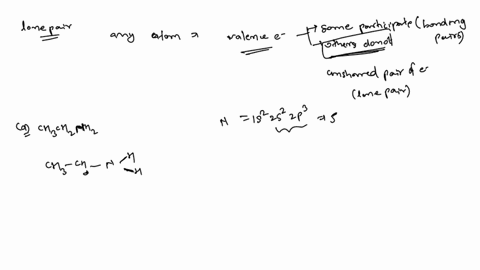 lone pair
any atom ⇒ valence e⁻ → some participate (bonding pairs)
others donot
unshared pair of e⁻
(lone pair)
(a) CH₃CH₂NH₂
N = 1s² 2s² 2p³ ⇒ 5
CH₃-CH₂-N
H
H